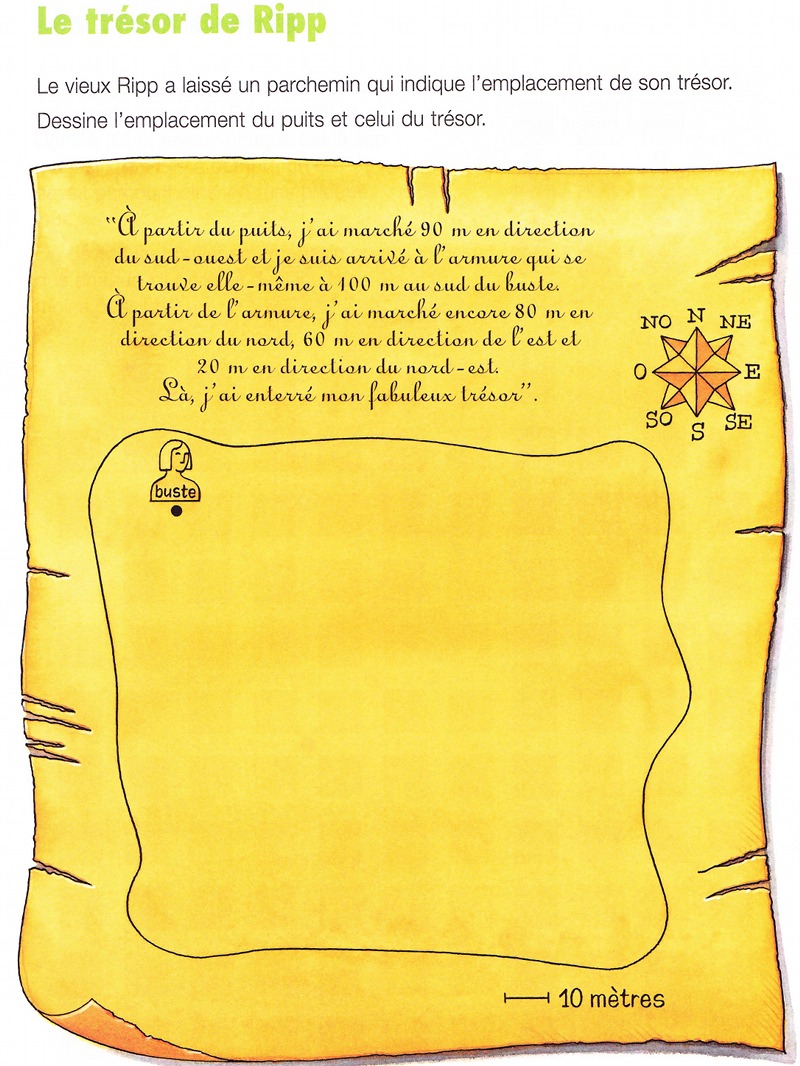 Le trésor de Ripp
Le vieux Ripp a laissé un parchemin qui indique l'emplacement de son trésor.
Dessine l'emplacement du puits et celui du trésor.
“À partir du puits, j'ai marché 90 m en direction
du sud-ouest et je suis arrivé à l'armure qui se
trouve elle-même à 100 m au sud du buste.
À partir de l'armure, j'ai marché encore 80 m en
direction du nord, 60 m en direction de l'est et
20 m en direction du nord-est.
Là, j'ai enterré mon fabuleux trésor”.
NO N NE
O E
SO S SE
buste
10 mètres